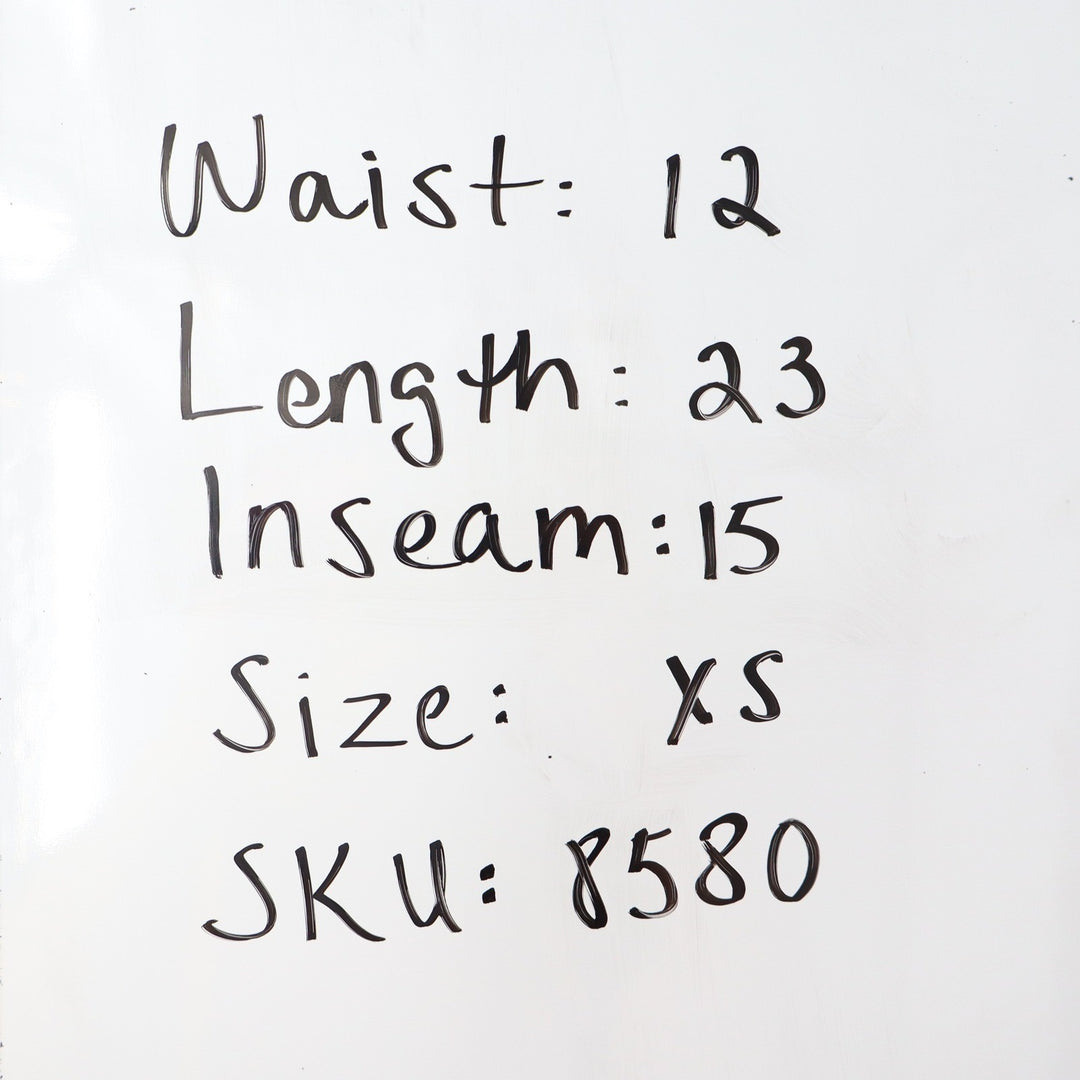 Waist: 12
Length: 23
Inseam: 15
Size: XS
SKU: 8580